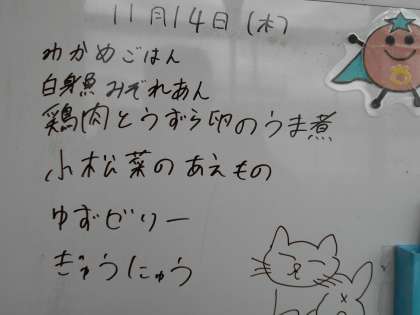 11月14日(木)
わかめごはん
白身魚みぞれあん
鶏肉とうずら卵のうま煮
小松菜のあえもの
ゆずゼリー
ぎゅうにゅう